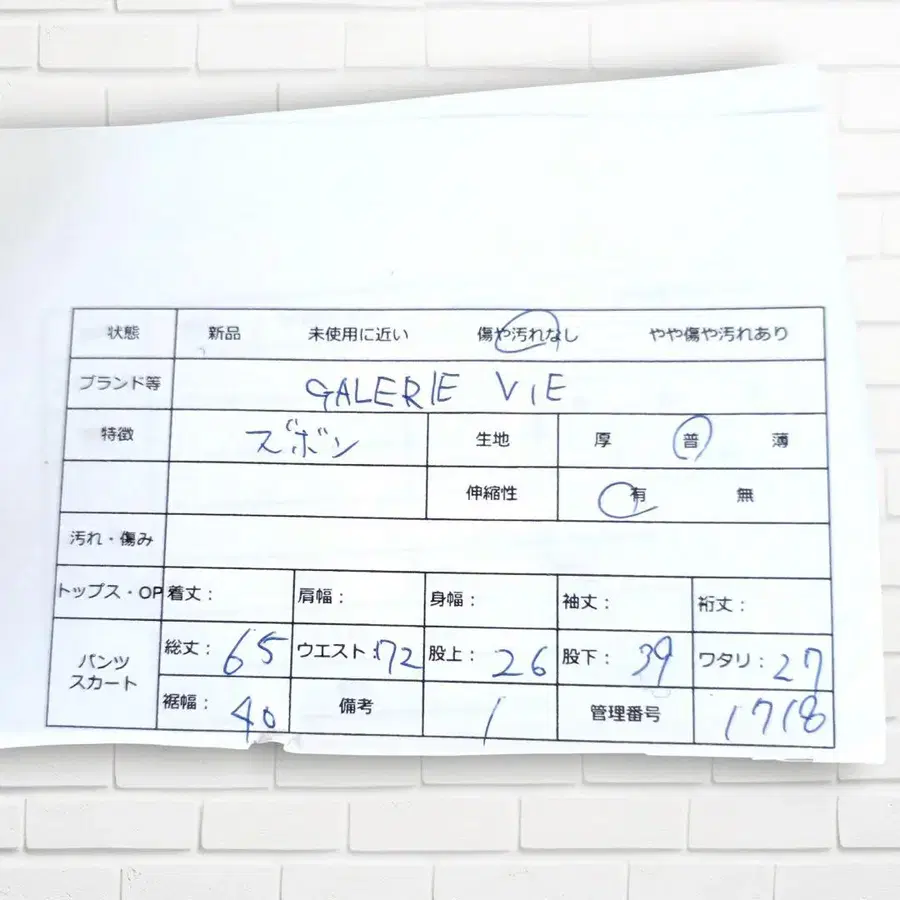 状態 新品 未使用に近い 傷や汚れなし やや傷や汚れあり
ブランド等 GALERIE VIE
特徴 ズボン 生地 厚 普 薄
伸縮性 有 無
汚れ・傷み
トップス・OP 着丈： 肩幅： 身幅： 袖丈： 裄丈：
パンツ スカート 総丈：65 ウエスト：72 股上：26 股下：39 ワタリ：27
裾幅：40 備考 1 管理番号 1718